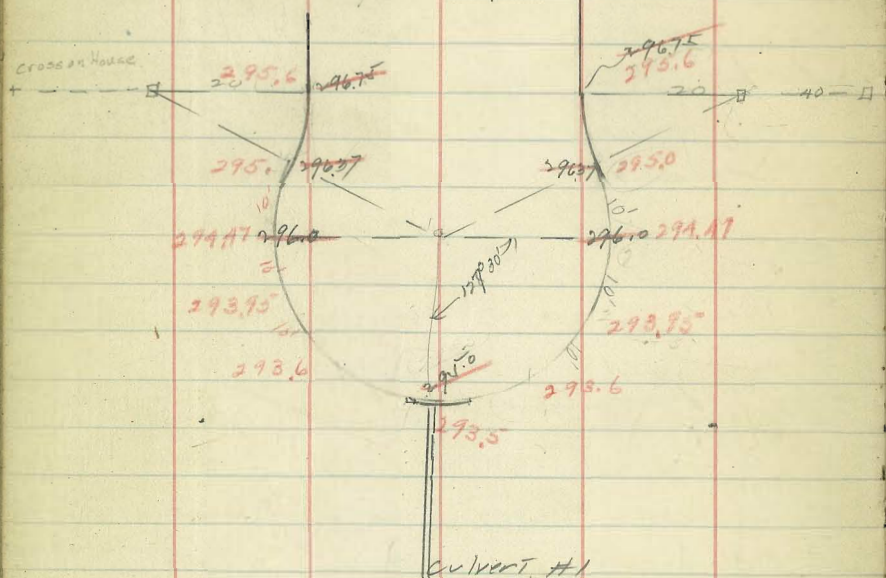 cross on House
295.6 296.75
296.75
295.6
20
20 40
295. 296.37
296.37 295.0
10'
10'
294.47 296.0
296.0 294.47
10'
10'
293.95
293.95
10'
10'
293.6
293.6
295.0
293.5
Culvert #1